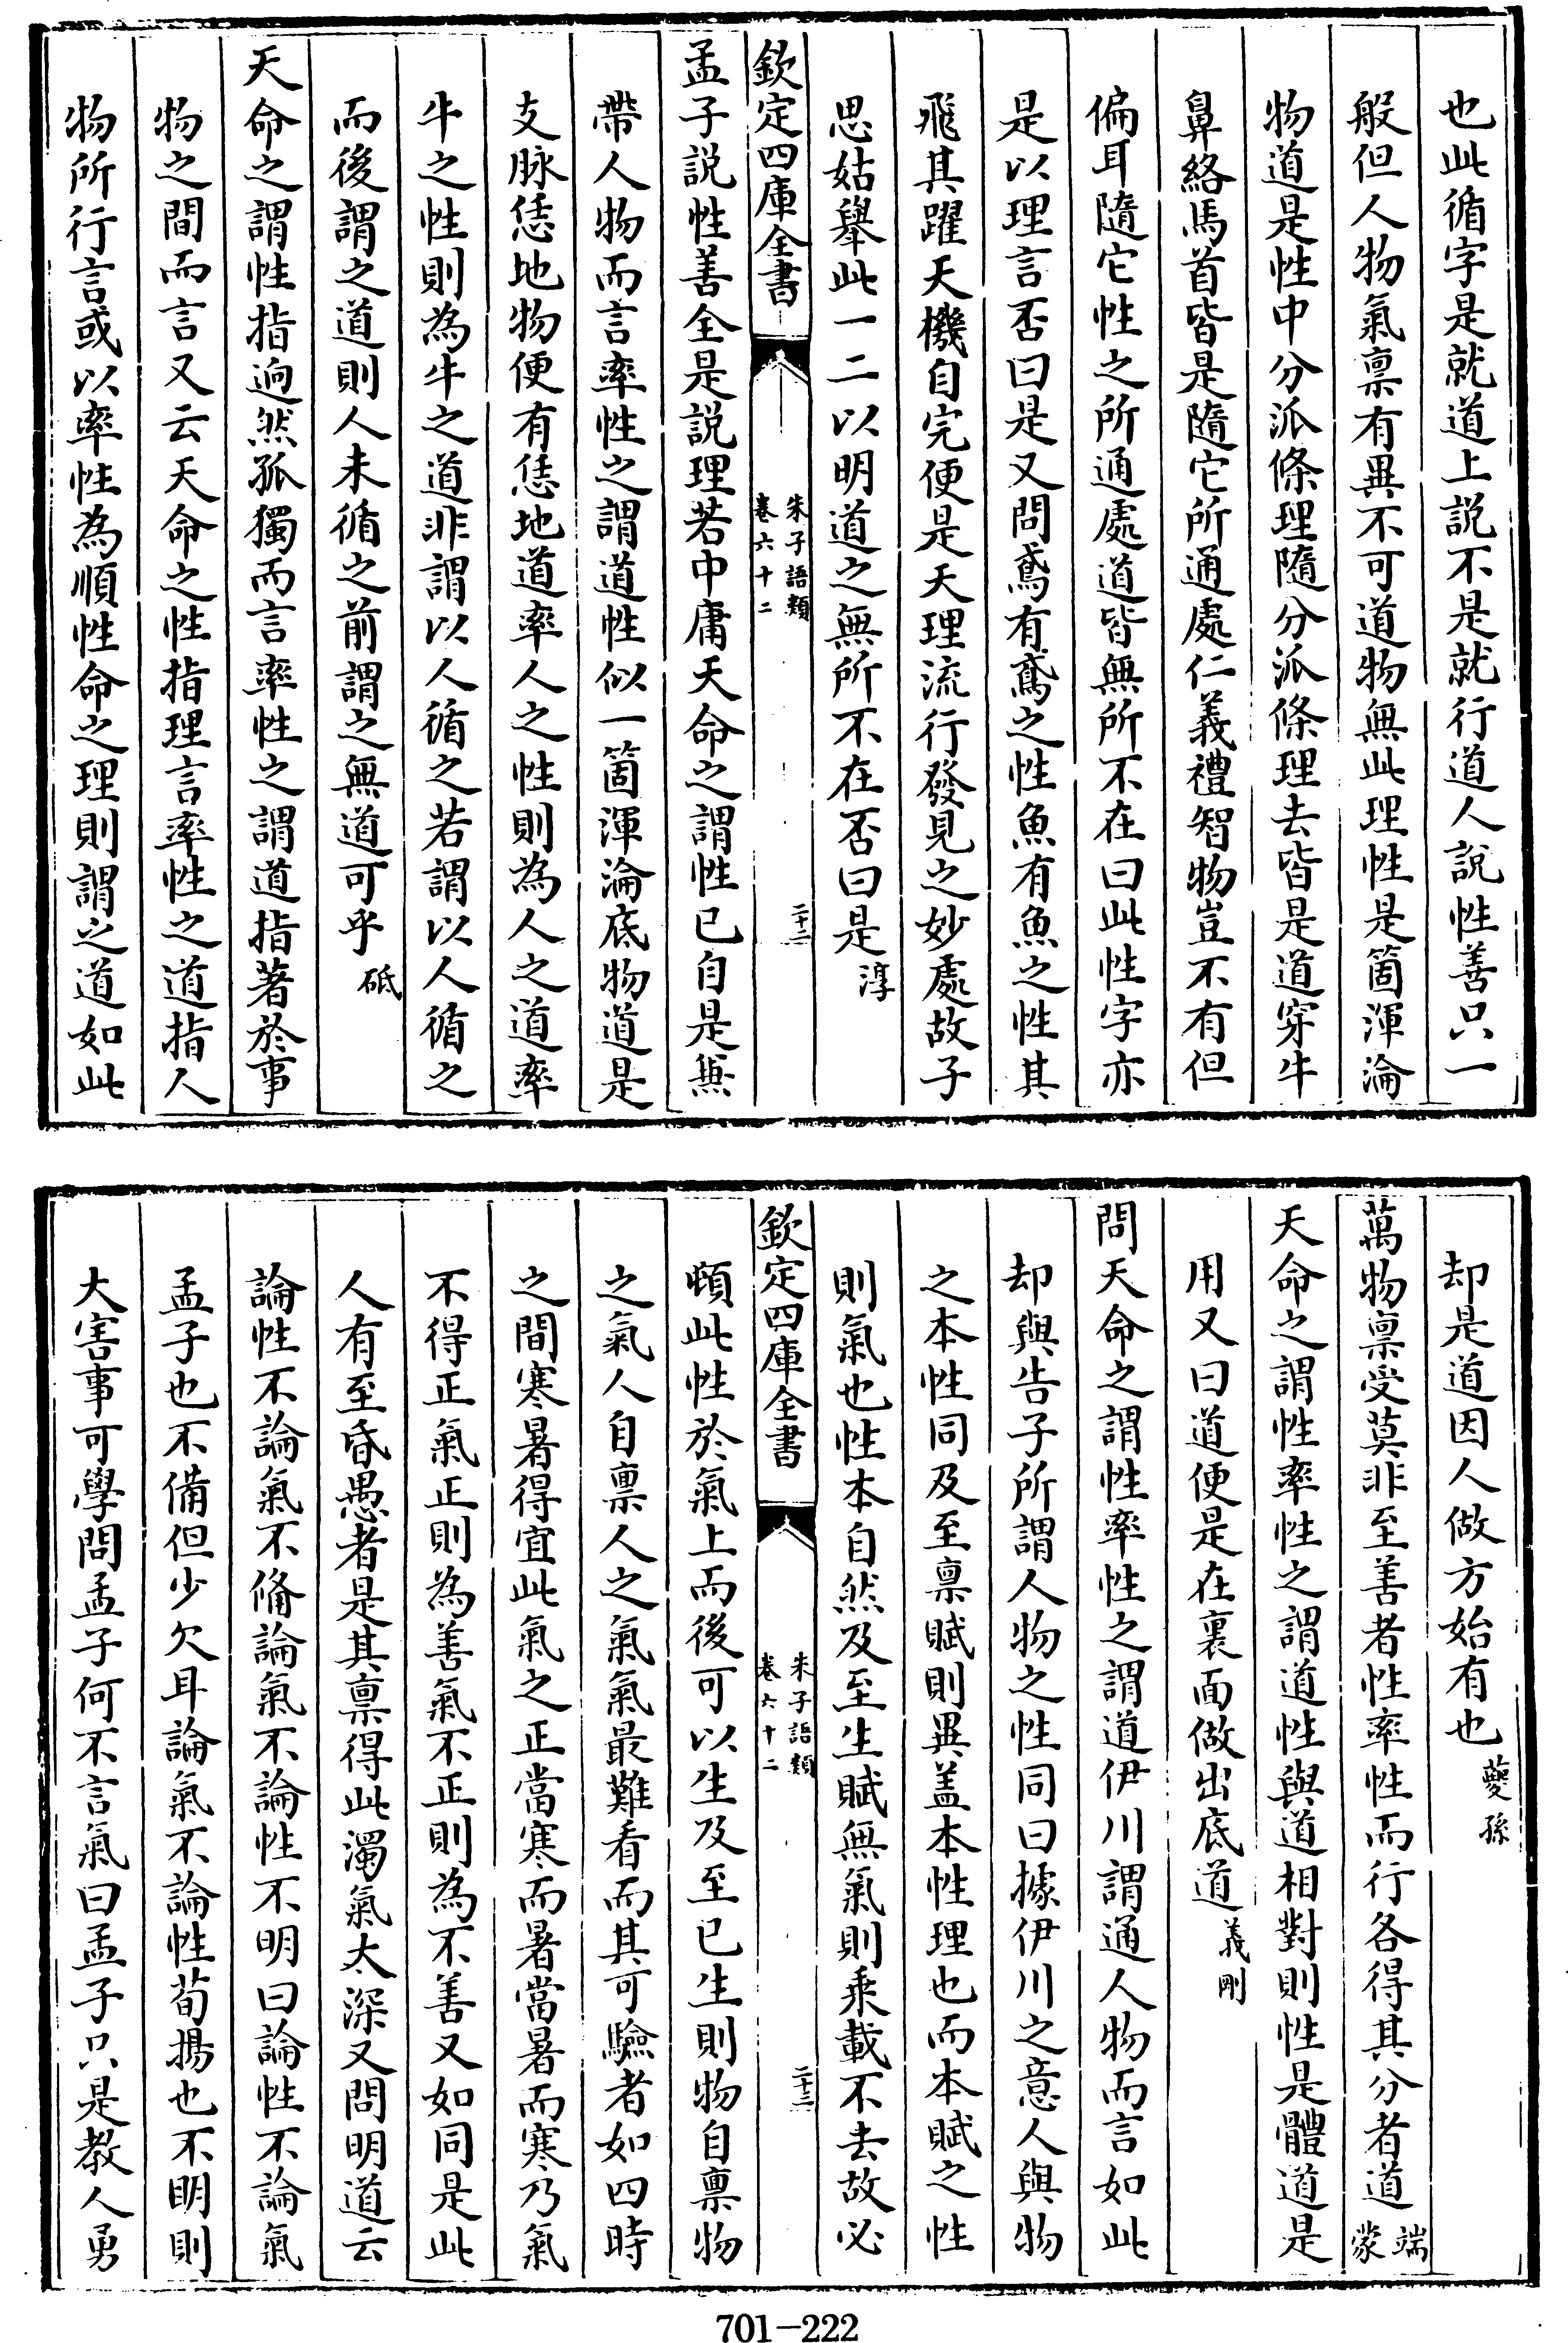 也此循字是就道上説不是就行道人說性善只一
般但人物氣禀有異不可道物無此理性是箇渾淪
物道是性中分派條理隨分派條理去皆是道穿牛
鼻絡馬首皆是隨它所通處仁義禮智物豈不有但
偏耳隨它性之所通處道皆無所不在曰此性字亦
是以理言否曰是又問鳶有鳶之性魚有魚之性其
飛其躍天機自完便是天理流行發見之妙處故子
思姑舉此一二以明道之無所不在否曰是淳
欽定四庫全書
朱子語類
卷六十二
二十二
孟子説性善全是説理若中庸天命之謂性已自是兼
帶人物而言率性之謂道性似一箇渾淪底物道是
支脉恁地物便有恁地道率人之性則為人之道率
牛之性則為牛之道非謂以人循之若謂以人循之
而後謂之道則人未循之前謂之無道可乎砥
天命之謂性指迥然孤獨而言率性之謂道指著於事
物之間而言又云天命之性指理言率性之道指人
物所行言或以率性為順性命之理則謂之道如此
却是道因人做方始有也夔孫
萬物禀受莫非至善者性率性而行各得其分者道端蒙
天命之謂性率性之謂道性與道相對則性是體道是
用又曰道便是在裏面做出底道義剛
問天命之謂性率性之謂道伊川謂通人物而言如此
却與告子所謂人物之性同曰據伊川之意人與物
之本性同及至禀賦則異盖本性理也而本賦之性
則氣也性本自然及至生賦無氣則乘載不去故必
頓此性於氣上而後可以生及至已生則物自禀物
欽定四庫全書
朱子語類
卷六十二
二十三
之氣人自禀人之氣氣最難看而其可驗者如四時
之間寒暑得宜此氣之正當寒而暑當暑而寒乃氣
不得正氣正則為善氣不正則為不善又如同是此
人有至昏愚者是其禀得此濁氣太深又問明道云
論性不論氣不備論氣不論性不明曰論性不論氣
孟子也不備但少欠耳論氣不論性荀揚也不明則
大害事可學問孟子何不言氣曰孟子只是教人勇
701-222